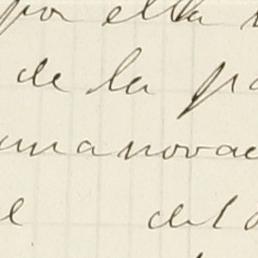 por ella
de la pa
una novac
l del